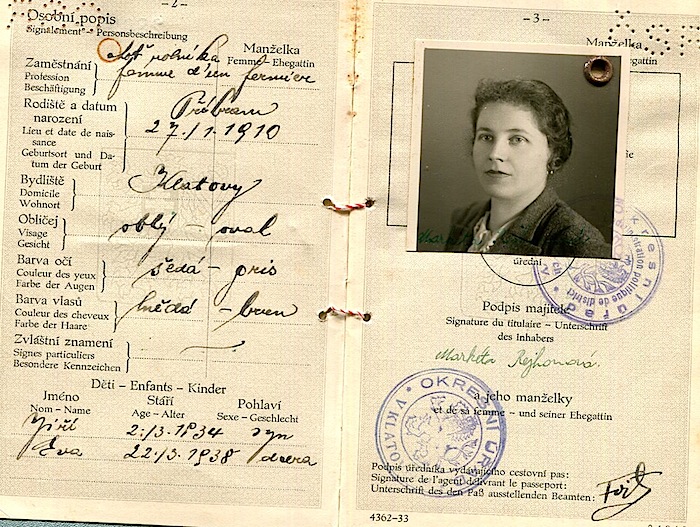 – 2 –
Osobní popis
Signalement – Personsbeschreibung
Manželka
Femme – Ehegattin
Zaměstnání
Profession
Beschäftigung
choť rolníka
femme d'un fermier
Rodiště a datum
narození
Lieu et date de nais-
sance
Geburtsort und Da-
tum der Geburt
Příbram
27./1. 1910
Bydliště
Domicile
Wohnort
Klatovy
Obličej
Visage
Gesicht
oblý – oval
Barva očí
Couleur des yeux
Farbe der Augen
šedá – gris
Barva vlasů
Couleur des cheveux
Farbe der Haare
hnědá – brun
Zvláštní znamení
Signes particuliers
Besondere Kennzeichen
Děti – Enfants – Kinder
Jméno Stáří Pohlaví
Nom – Name Age – Alter Sexe – Geschlecht
Jiří 2./3. 1934 syn
Eva 22./3. 1938 dcera
– 3 –
Manželka
Femme – Ehegattin
úřední
Podpis majitele
Signature du titulaire – Unterschrift
des Inhabers
Markéta Rejhonová.
a jeho manželky
et de sa femme – und seiner Ehegattin
OKRESNÍ ÚŘ
V KLATOV
Podpis úředníka vydávajícího cestovní pas:
Signature de l'agent délivrant le passeport:
Unterschrift des den Paß ausstellenden Beamten:
4362–33